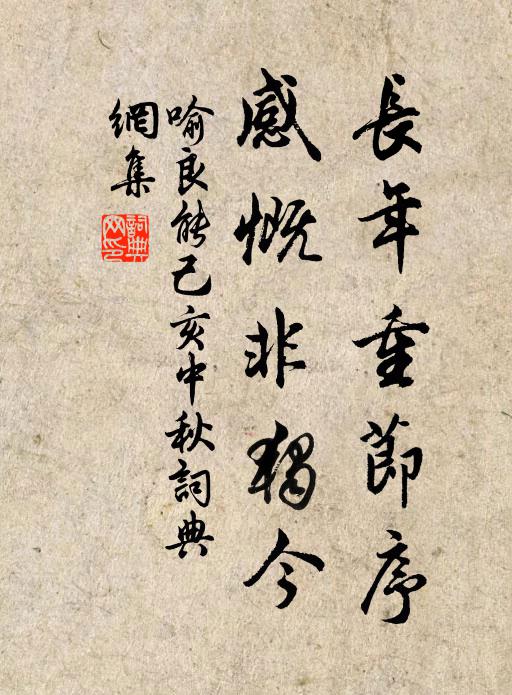 長年重節序
感慨非獨今
喻良能己亥中秋詞典
網集
詞典
网印